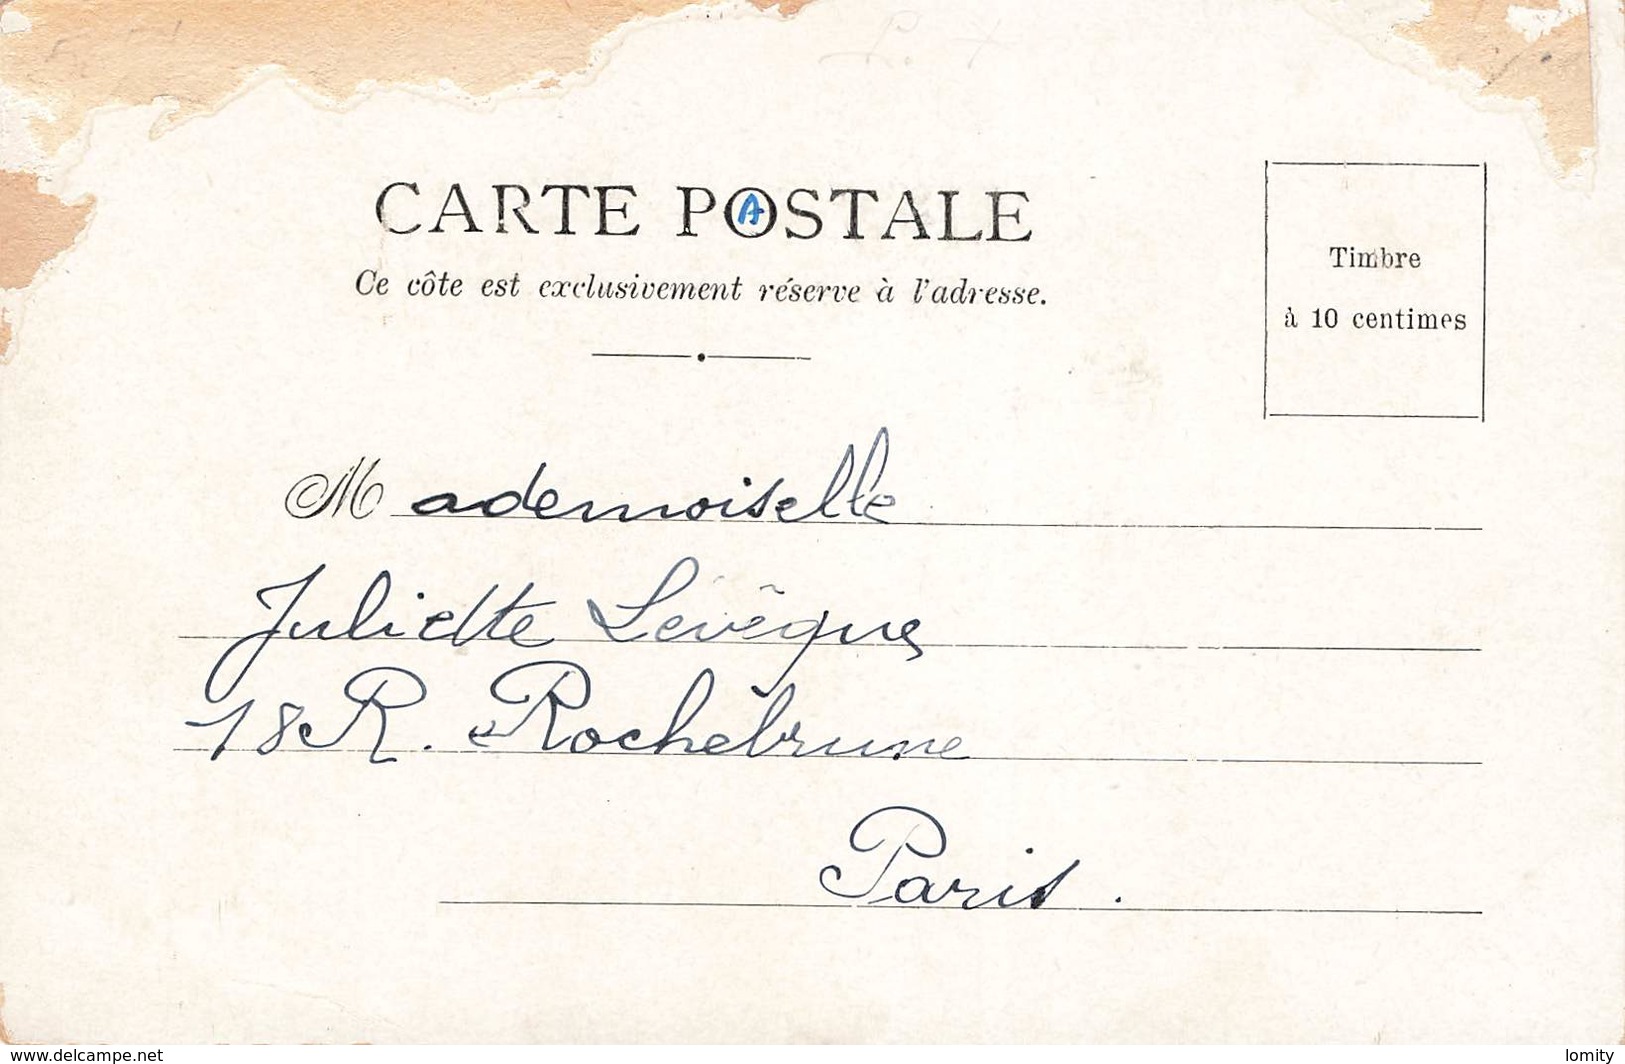 CARTE POSTALE
A
Ce côte est exclusivement réserve à l'adresse.
Timbre
à 10 centimes
Mademoiselle
Juliette Levêque
18 R. Rochebrune
Paris.
www.delcampe.net
lomity